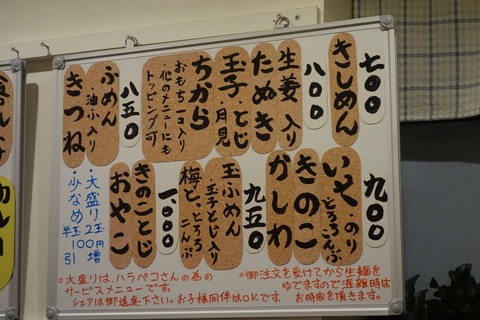 七〇〇
きしめん
八〇〇
生姜入り
たぬき
玉子・とじ
・月見
ちから
おもち二コ入り
・他のメニューにも
トッピング可
八五〇
ふめん
・油ふ入り
きつね
九〇〇
いそ・のり
・とろろこんぶ
きのこ
かしわ
九五〇
玉ふめん
・玉子とじ入り
梅と、とろろこんぶ
一、〇〇〇
きのことじ
おやこ
・大盛り2玉100円増
・少なめ半玉 引
○大盛りは、ハラペコさんの為の
サービスメニューです。
シェアは御遠慮下さい。お子様同伴はOKです。
○御注文を受けてから生麺を
ゆでますので混雑時は
お時間を頂きます。